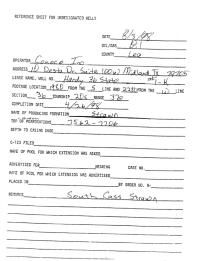 REFERENCE SHEET FOR UNDESIGNATED WELLS
DATE
OIL/GAS
COUNTY Lea
OPERATOR Conoco Inc
ADDRESS 10 Desta Dr. Suite 100W Midland TX 79705
LEASE NAME, WELL NO. Hardy 36 State
FOOTAGE LOCATION FROM THE S LINE AND FROM THE W LINE
SECTION 36 TOWNSHIP 20S RANGE 37E
COMPLETION DATE
NAME OF PRODUCING FORMATION Strawn
TOP OF PERFORATIONS 7562 - 7706
DEPTH TO CASING SHOE
C-123 FILED
NAME OF POOL FOR WHICH EXTENSION WAS ASKED
ADVERTISED FOR HEARING CASE NO.
NAME OF POOL FOR WHICH EXTENSION WAS ADVERTISED
PLACED IN BY ORDER NO. R-
REMARKS South Cass Strawn